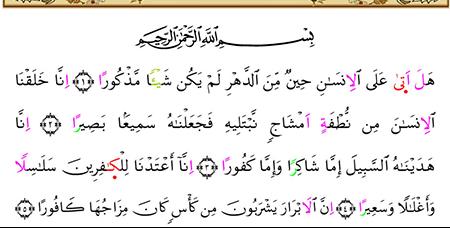 بِسْمِ ٱللَّهِ ٱلرَّحْمَٰنِ ٱلرَّحِيمِ
هَلَ اَتَىٰ عَلَى اَلِانسَٰنِ حِينٌ مِّنَ اَلدَّهْرِ لَمْ يَكُن شَيْـٔاً مَّذْكُوراًۖ ﴿١﴾ اِنَّا خَلَقْنَا
اَلِانسَٰنَ مِن نُّطْفَةٍ اَمْشَاجٖ نَّبْتَلِيهِ فَجَعَلْنَٰهُ سَمِيعَۢا بَصِيراًۖ ﴿٢﴾ اِنَّا
هَدَيْنَٰهُ اُلسَّبِيلَ إِمَّا شَاكِراً وَإِمَّا كَفُوراًۖ ﴿٣﴾ اِنَّآ أَعْتَدْنَا لِلْكٰ۪فِرِينَ سَلَٰسِلاً
وَأَغْلَٰلاً وَسَعِيراًۖ ﴿٤﴾ اِنَّ اَلَابْرَارَ يَشْرَبُونَ مِن كَأْسٖ كَانَ مِزَاجُهَا كَافُوراًۖ ﴿٥﴾